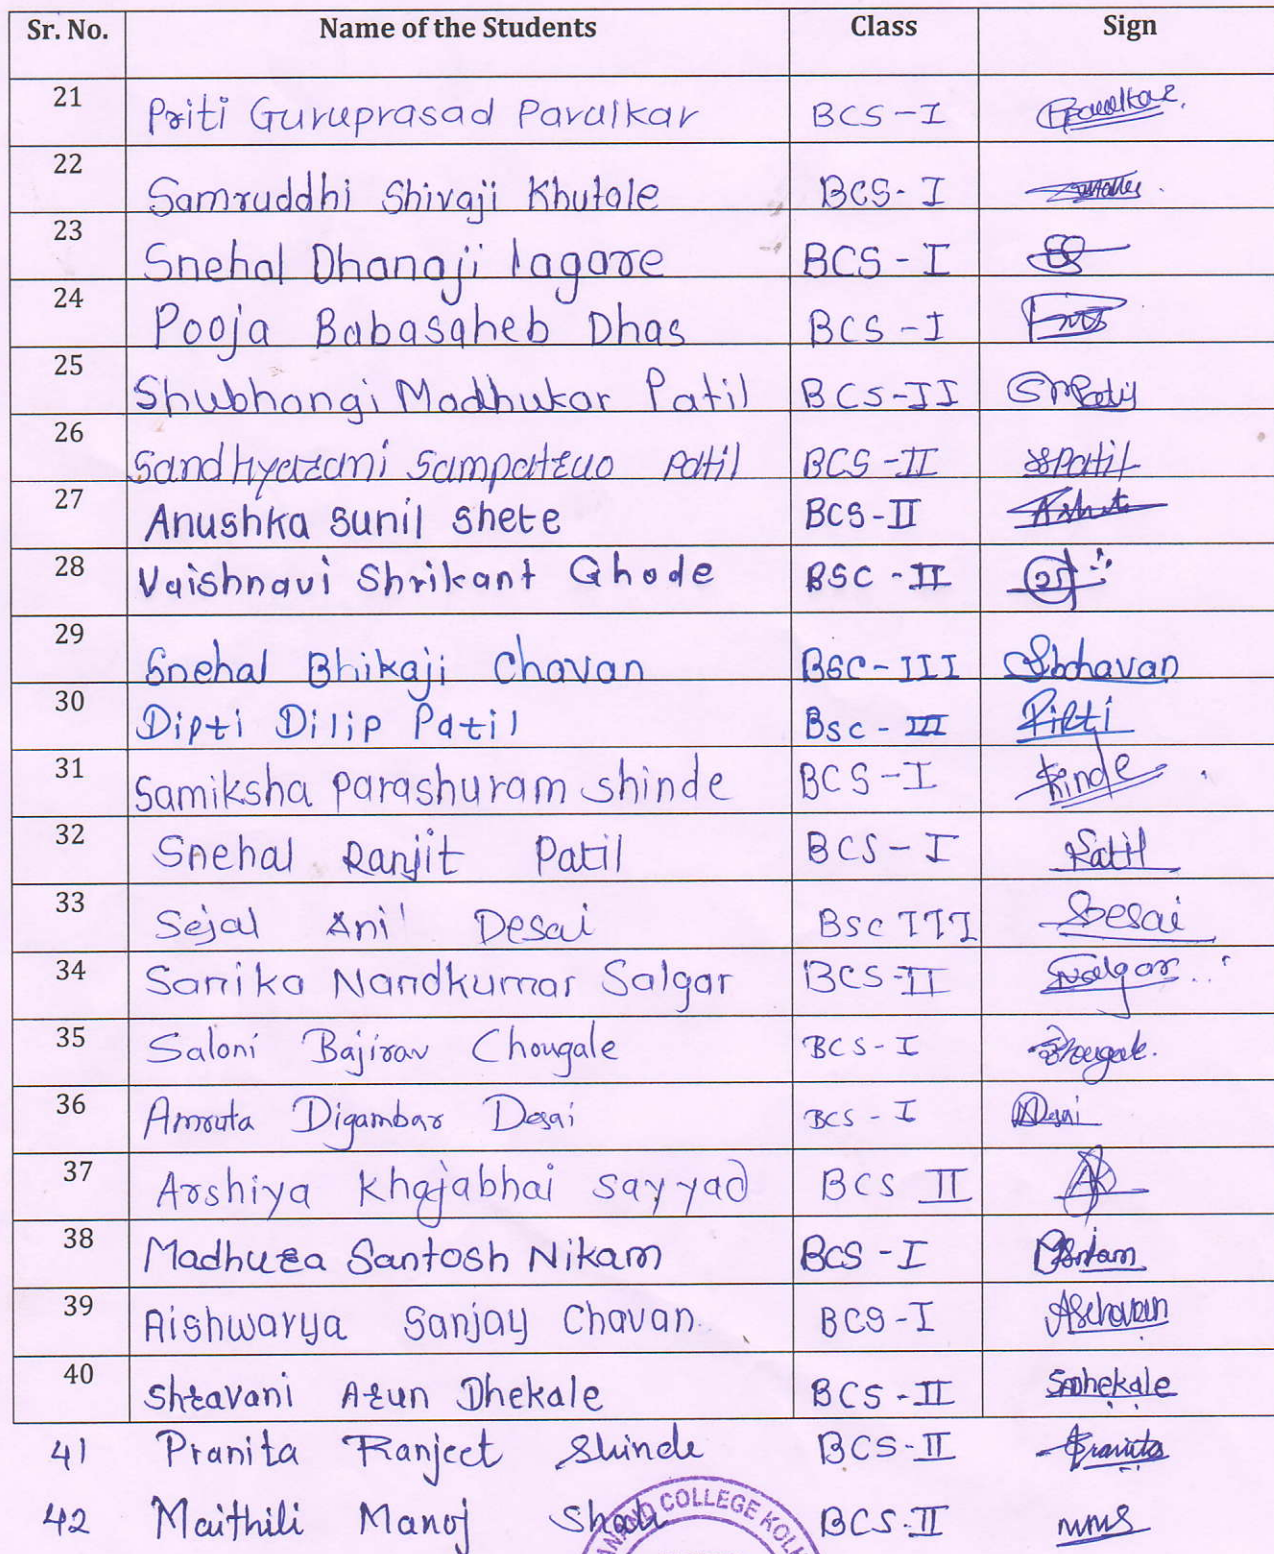 Sr. No. Name of the Students Class Sign
21 Priti Guruprasad Parulkar BCS-I Parulkar.
22 Samruddhi Shivaji Khutale BCS-I
23 Snehal Dhanaji lagare BCS-I
24 Pooja Babasaheb Dhas BCS-I
25 Shubhangi Madhukar Patil BCS-II SMPatil
26 Sandhyarani Sampatrao Patil BCS-II SPatil
27 Anushka Sunil Shete BCS-II
28 Vaishnavi Shrikant Ghode BSC-II
29 Snehal Bhikaji Chavan BSC-III SBchavan
30 Dipti Dilip Patil Bsc-III Dipti
31 Samiksha parashuram shinde BCS-I Shinde
32 Snehal Ranjit Patil BCS-I Patil
33 Sejal Anil Desai Bsc III Desai
34 Sanika Nandkumar Salgar BCS-II Salgar
35 Saloni Bajirav Chougale BCS-I Chougale.
36 Amruta Digambar Desai BCS-I ADesai
37 Arshiya Khajabhai Sayyad BCS II
38 Madhura Santosh Nikam BCS-I
39 Aishwarya Sanjay Chavan. BCS-I ASChavan
40 Shravani Arun Dhekale BCS-II SADhekale
41 Pranita Ranjeet Shinde BCS-II Pranita
42 Maithili Manoj Shah BCS-II MMS
ANAND COLLEGE KOL